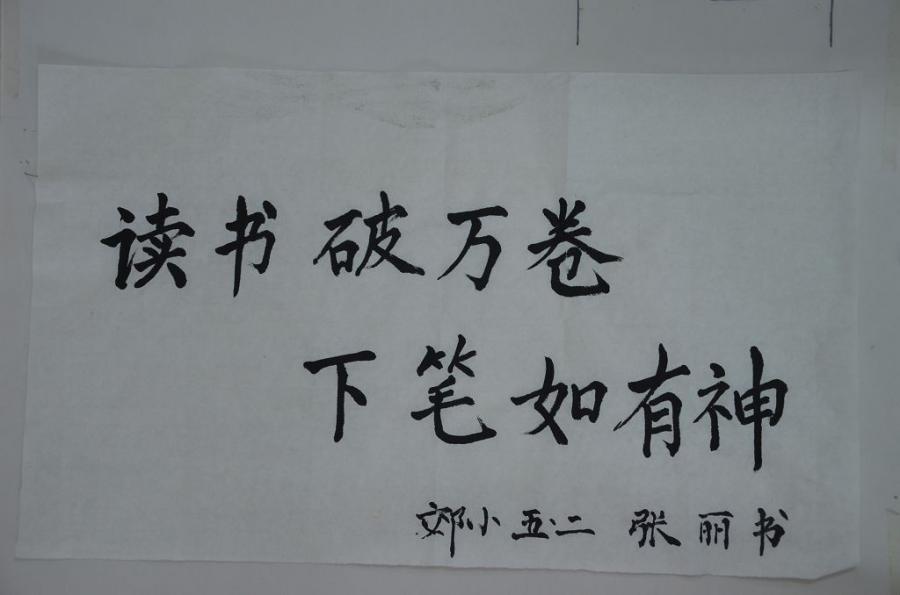 读书破万卷
下笔如有神
郊小五·二 张丽书